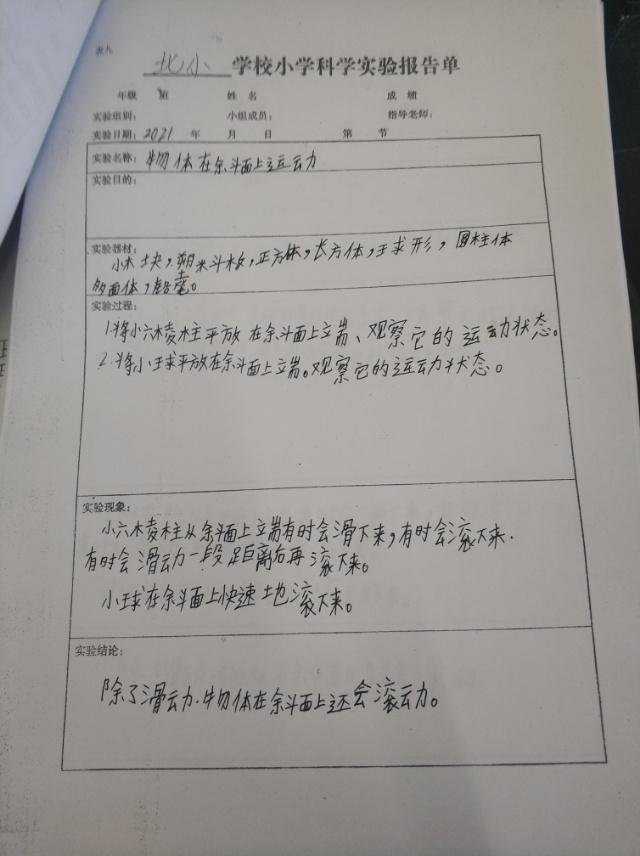 表九
北小 学校小学科学实验报告单
年级 班 姓名 成绩
实验组别： 小组成员： 指导老师：
实验日期：2021 年 月 日 第 节
实验名称：物体在斜面上运动
实验目的：
实验器材：
小木块，斜板，正方体，长方体，球形，圆柱体
多面体，铅笔。
实验过程：
1.将小六棱柱平放在斜面上端、观察它的运动状态。
2.将小球平放在斜面上端。观察它的运动状态。
实验现象：
小六棱柱从斜面上端有时会滑下来，有时会滚下来.
有时会滑动一段距离后再滚下来。
小球在斜面上快速地滚下来。
实验结论：
除了滑动.物体在斜面上还会滚动。